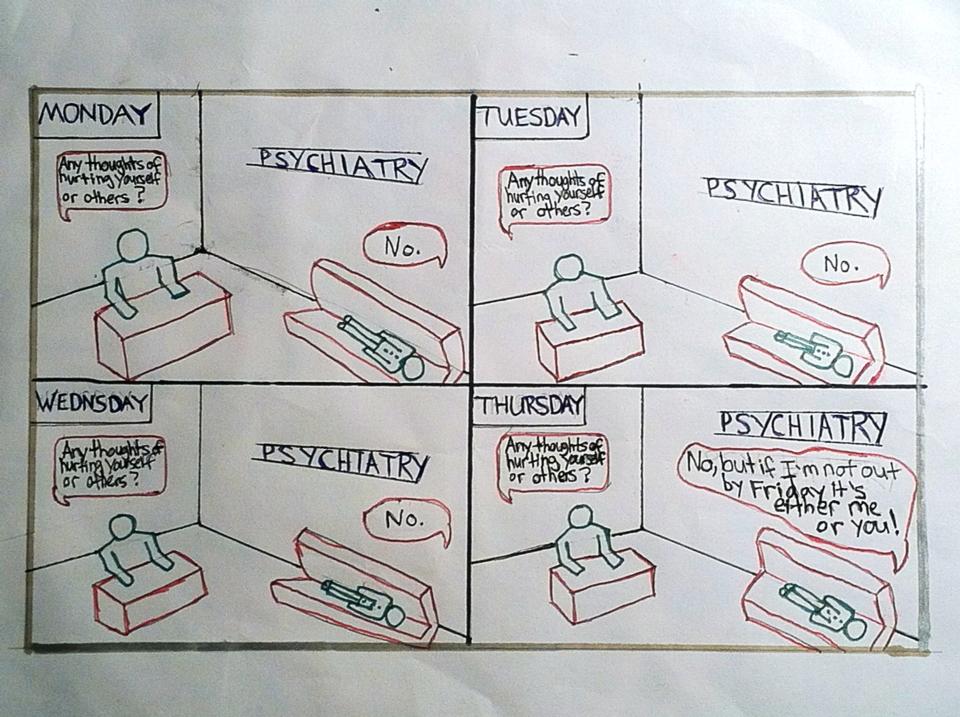 MONDAY
Any thoughts of
hurting yourself
or others?
PSYCHIATRY
No.
TUESDAY
Any thoughts of
hurting yourself
or others?
PSYCHIATRY
No.
WEDNSDAY
Any thoughts of
hurting yourself
or others?
PSYCHIATRY
No.
THURSDAY
Any thoughts of
hurting yourself
or others?
PSYCHIATRY
No, but if I'm not out
by Friday it's
either me
or you!